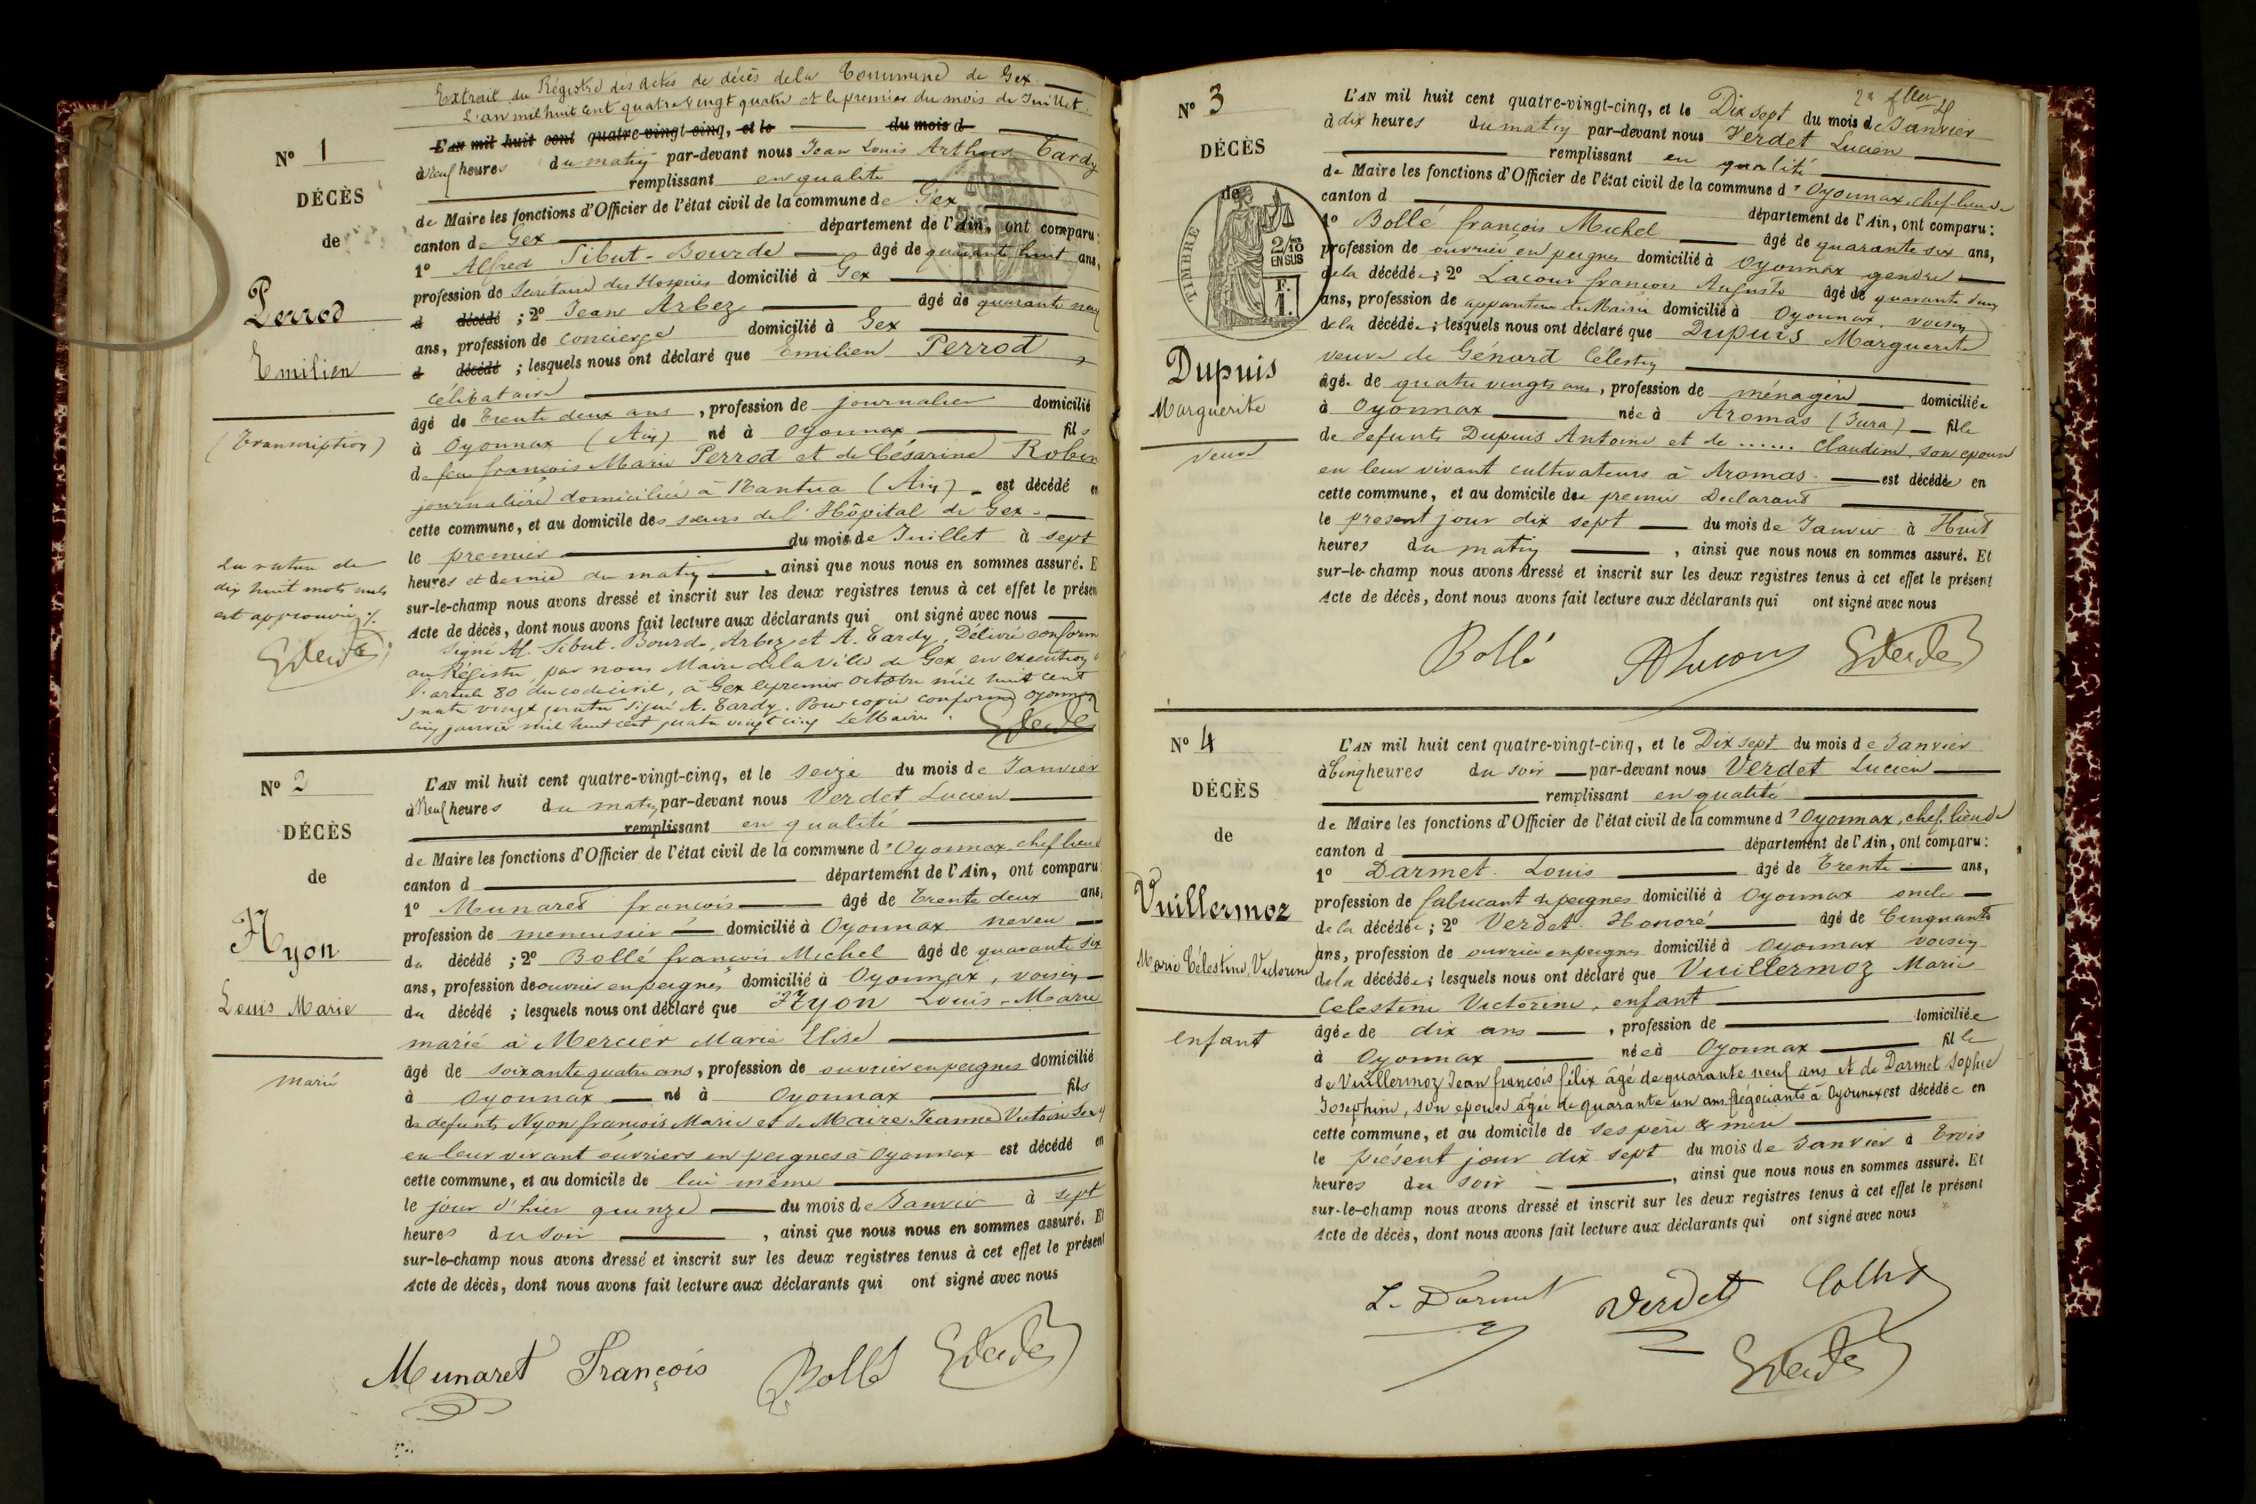 Extrait du Régistre des actes de décès de la Commune de Gex
L'an mil huit cent quatre vingt quatre et le premier du mois de Juillet
L'AN mil huit cent quatre-vingt-cinq, et le du mois d
N° 1
à neuf heures du matin par-devant nous Jean Louis Arthur Tardy
DÉCÈS
remplissant en qualité
de
de Maire les fonctions d'Officier de l'état civil de la commune de Gex
canton de Gex département de l'Ain, ont comparu :
1° Alfred Sibut-Bourde âgé de quarante huit ans,
profession de Secrétaire des Hospices domicilié à Gex
Perrod
d décédé ; 2° Jean Arbez âgé de quarante neuf
ans, profession de concierge domicilié à Gex
Emilien
d décédé ; lesquels nous ont déclaré que Emilien Perrod
célibataire
âgé de trente deux ans, profession de journalier domicilié
(Transcription)
à Oyonnax (Ain) né à Oyonnax fils
de feu françois Marie Perrod et de Césarine Robin
journalière domiciliée à Nantua (Ain) est décédé en
cette commune, et au domicile des sœurs de l'Hôpital de Gex
le premier du mois de Juillet à sept
heures et demie du matin, ainsi que nous nous en sommes assuré. E
sur-le-champ nous avons dressé et inscrit sur les deux registres tenus à cet effet le présen
Acte de décès, dont nous avons fait lecture aux déclarants qui ont signé avec nous
La rature de
dix huit mots nuls
est approuvée
Signé Al. Sibut-Bourde, Arbez et A. Tardy. Délivré conform
au Régistre, par nous Maire de la Ville de Gex en execution
l'article 80 du code civil, à Gex le premier octobre mil huit cent
quatre vingt quatre signé A. Tardy. Pour copie conforme Oyonnax
cinq janvier mil huit cent quatre vingt cinq Le Maire
N° 2
L'AN mil huit cent quatre-vingt-cinq, et le seize du mois de Janvier
à Neuf heures du matin par-devant nous Verdet Lucien
DÉCÈS
remplissant en qualité
de
de Maire les fonctions d'Officier de l'état civil de la commune d'Oyonnax, chef lieu de
canton d département de l'Ain, ont comparu
1° Munaret françois âgé de trente deux ans,
profession de menuisier domicilié à Oyonnax neveu
Hyon
du décédé ; 2° Bollé françois Michel âgé de quarante six
ans, profession de ouvrier en peignes domicilié à Oyonnax, voisin
Louis Marie
du décédé ; lesquels nous ont déclaré que Hyon Louis-Marie
marié à Mercier Marie Elise
marié
âgé de soixante quatre ans, profession de ouvrier en peignes domicilié
à Oyonnax né à Oyonnax fils
de defunts Nyon françois Marie et de Maire Jeanne Victoire
en leur vivant ouvriers en peignes à Oyonnax est décédé en
cette commune, et au domicile de lui même
le jour d'hier quinze du mois de Janvier à sept
heures du soir, ainsi que nous nous en sommes assuré. Et
sur-le-champ nous avons dressé et inscrit sur les deux registres tenus à cet effet le présent
Acte de décès, dont nous avons fait lecture aux déclarants qui ont signé avec nous
Munaret François Bollé
N° 3
L'AN mil huit cent quatre-vingt-cinq, et le Dix sept du mois de Janvier
à dix heures du matin par-devant nous Verdet Lucien
DÉCÈS
remplissant en qualité
de
de Maire les fonctions d'Officier de l'état civil de la commune d'Oyonnax, chef-lieu de
canton d département de l'Ain, ont comparu :
TIMBRE
2/10
EN SUS
F.
1.
1° Bollé françois Michel âgé de quarante six ans,
profession de ouvrier en peignes domicilié à Oyonnax gendre
de la décédée ; 2° Lacour françois Auguste âgé de quarante
ans, profession de appariteur de Mairie domicilié à Oyonnax, voisin
de la décédée ; lesquels nous ont déclaré que Dupuis Marguerite
Dupuis
Marguerite
veuve
veuve de Génard Célestin
âgée de quatre vingts ans, profession de ménagère domiciliée
à Oyonnax née à Aromas (Jura) fille
de defunts Dupuis Antoine et de ...... Claudine, son epouse
en leur vivant cultivateurs à Aromas est décédée en
cette commune, et au domicile du premier Déclarant
le present jour dix sept du mois de Janvier à Huit
heures du matin, ainsi que nous nous en sommes assuré. Et
sur-le-champ nous avons dressé et inscrit sur les deux registres tenus à cet effet le présent
Acte de décès, dont nous avons fait lecture aux déclarants qui ont signé avec nous
Bollé
N° 4
L'AN mil huit cent quatre-vingt-cinq, et le Dix sept du mois de Janvier
à Cinq heures du soir par-devant nous Verdet Lucien
DÉCÈS
remplissant en qualité
de
de Maire les fonctions d'Officier de l'état civil de la commune d'Oyonnax, chef lieu de
canton d département de l'Ain, ont comparu :
1° Darmet Louis âgé de trente ans,
profession de fabricant de peignes domicilié à Oyonnax oncle
Vuillermoz
de la décédée ; 2° Verdet Honoré âgé de Cinquante
Marie Célestine Victorine
ans, profession de ouvrier en peignes domicilié à Oyonnax voisin
de la décédée ; lesquels nous ont déclaré que Vuillermoz Marie
Celestine Victorine, enfant
enfant
âgée de dix ans, profession de domiciliée
à Oyonnax née à Oyonnax fille
de Vuillermoz Jean françois félix âgé de quarante neuf ans et de Darmet Sophie
Josephine, son epouse âgée de quarante un ans, négociants à Oyonnax est décédée en
cette commune, et au domicile de ses père & mère
le présent jour dix sept du mois de Janvier à Trois
heures du soir, ainsi que nous nous en sommes assuré. Et
sur-le-champ nous avons dressé et inscrit sur les deux registres tenus à cet effet le présent
Acte de décès, dont nous avons fait lecture aux déclarants qui ont signé avec nous
L. Darmet Verdet